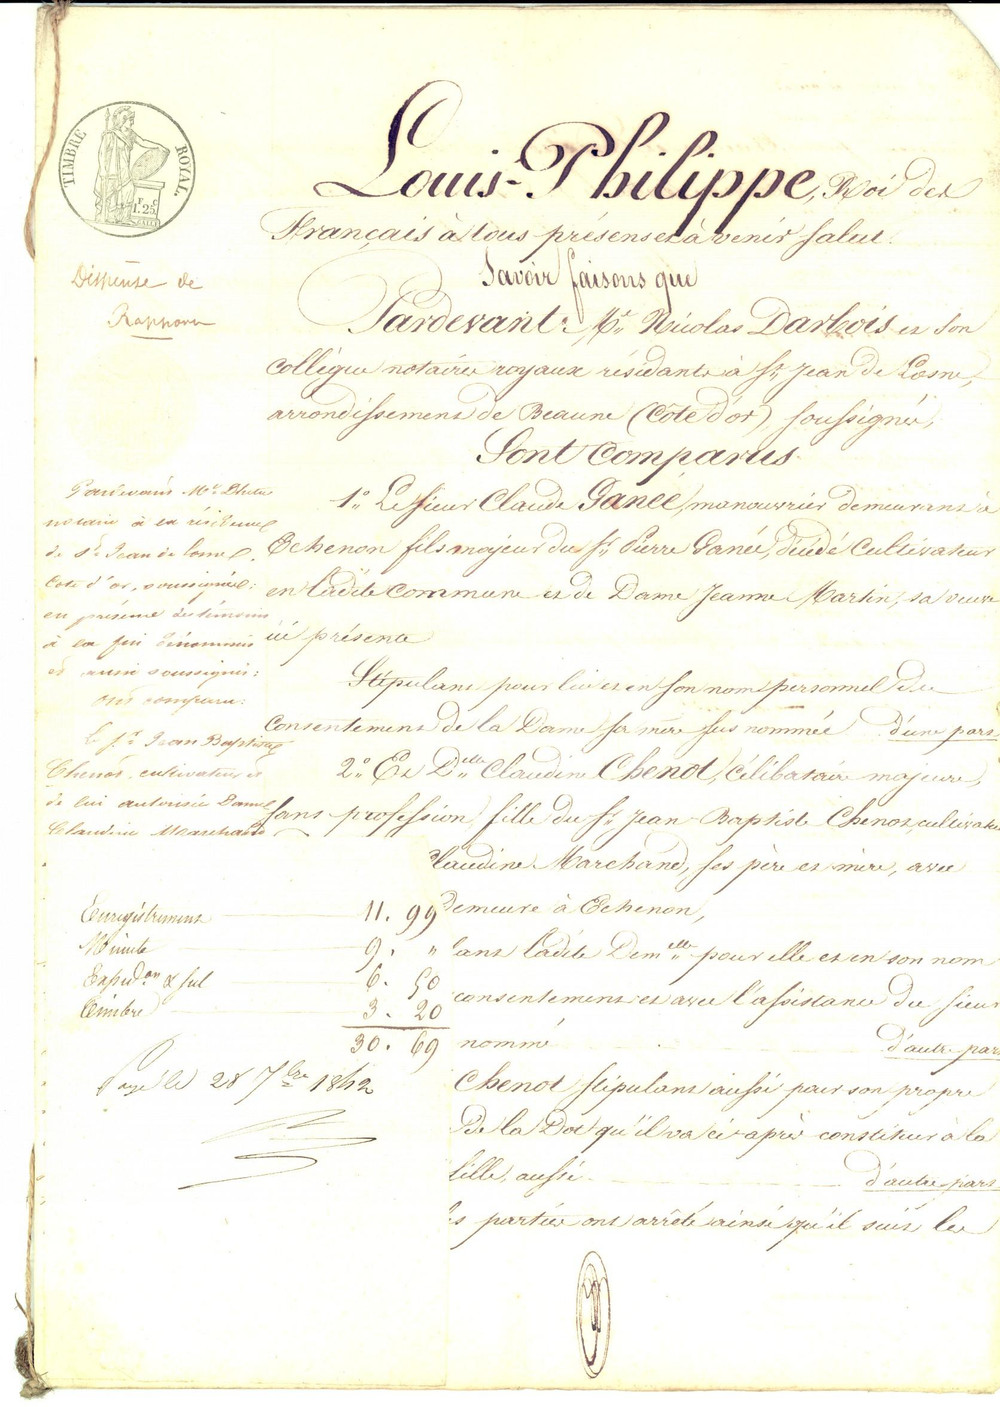 TIMBRE ROYAL.
F. C.
1. 25
Dispense de
Rapporter
Louis-Philippe, Roi des
Français à tous présens et à venir salut.
Savoir faisons que
Pardevant Me. Nicolas Darbois et son
collègue notaires royaux résidants à St. Jean de Losne,
arrondissement de Beaune (Côte d'or), soussignés,
Sont comparus
1o. Le sieur Claude Ganée, manouvrier demeurant à
Echenon fils majeur du Sr. Pierre Ganée, décédé cultivateur
en ladite commune et de Dame Jeanne Martin, sa veuve
ici présente
Stipulant pour lui et en son nom personnel du
consentement de la Dame sa mère sus nommée d'une part
2o. Et Delle Claudine Chenot, célibataire majeure,
sans profession, fille du Sr. Jean-Baptiste Chenot, cultivateur
laudine Marchand, ses père et mère, avec
demeure à Echenon,
lant ladite Demelle pour elle et en son nom
consentement et avec l'assistance du sieur
nommé d'autre part
Chenot stipulant aussi pour son propre
De la Dot qu'il va ci-après constituer à la
fille, aussi d'autre part
s parties ont arrêté ainsi qu'il suit les
Pardevant Me.
notaire à la résidence
de St. Jean de Losne,
Côte d'or, soussigné:
en présence des témoins
à la fin dénommés
et aussi soussignés:
ont comparu:
le Sr. Jean Baptiste
Chenot, cultivateur et
de lui autorisée Dame
Claudine Marchand
Enregistrement 11. 99
Minute 9. "
Expedon & sul 6. 50
Timbre 3. 20
30. 69
Payé le 28 7bre 1842